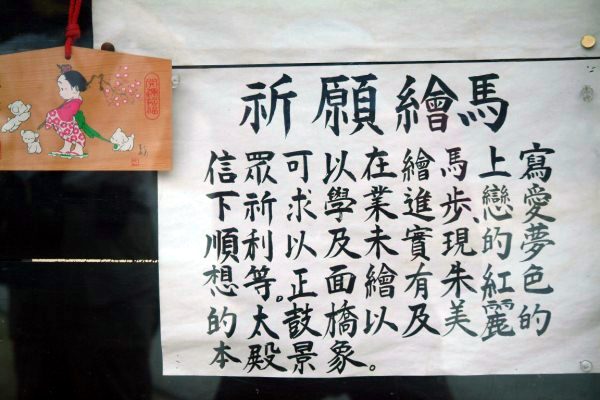 祈願繪馬
信眾可以在繪馬上寫
下祈求學業進步、戀愛
順利以及未實現的夢
想等。正面繪有朱紅色
的太鼓橋以及美麗的
本殿景象。